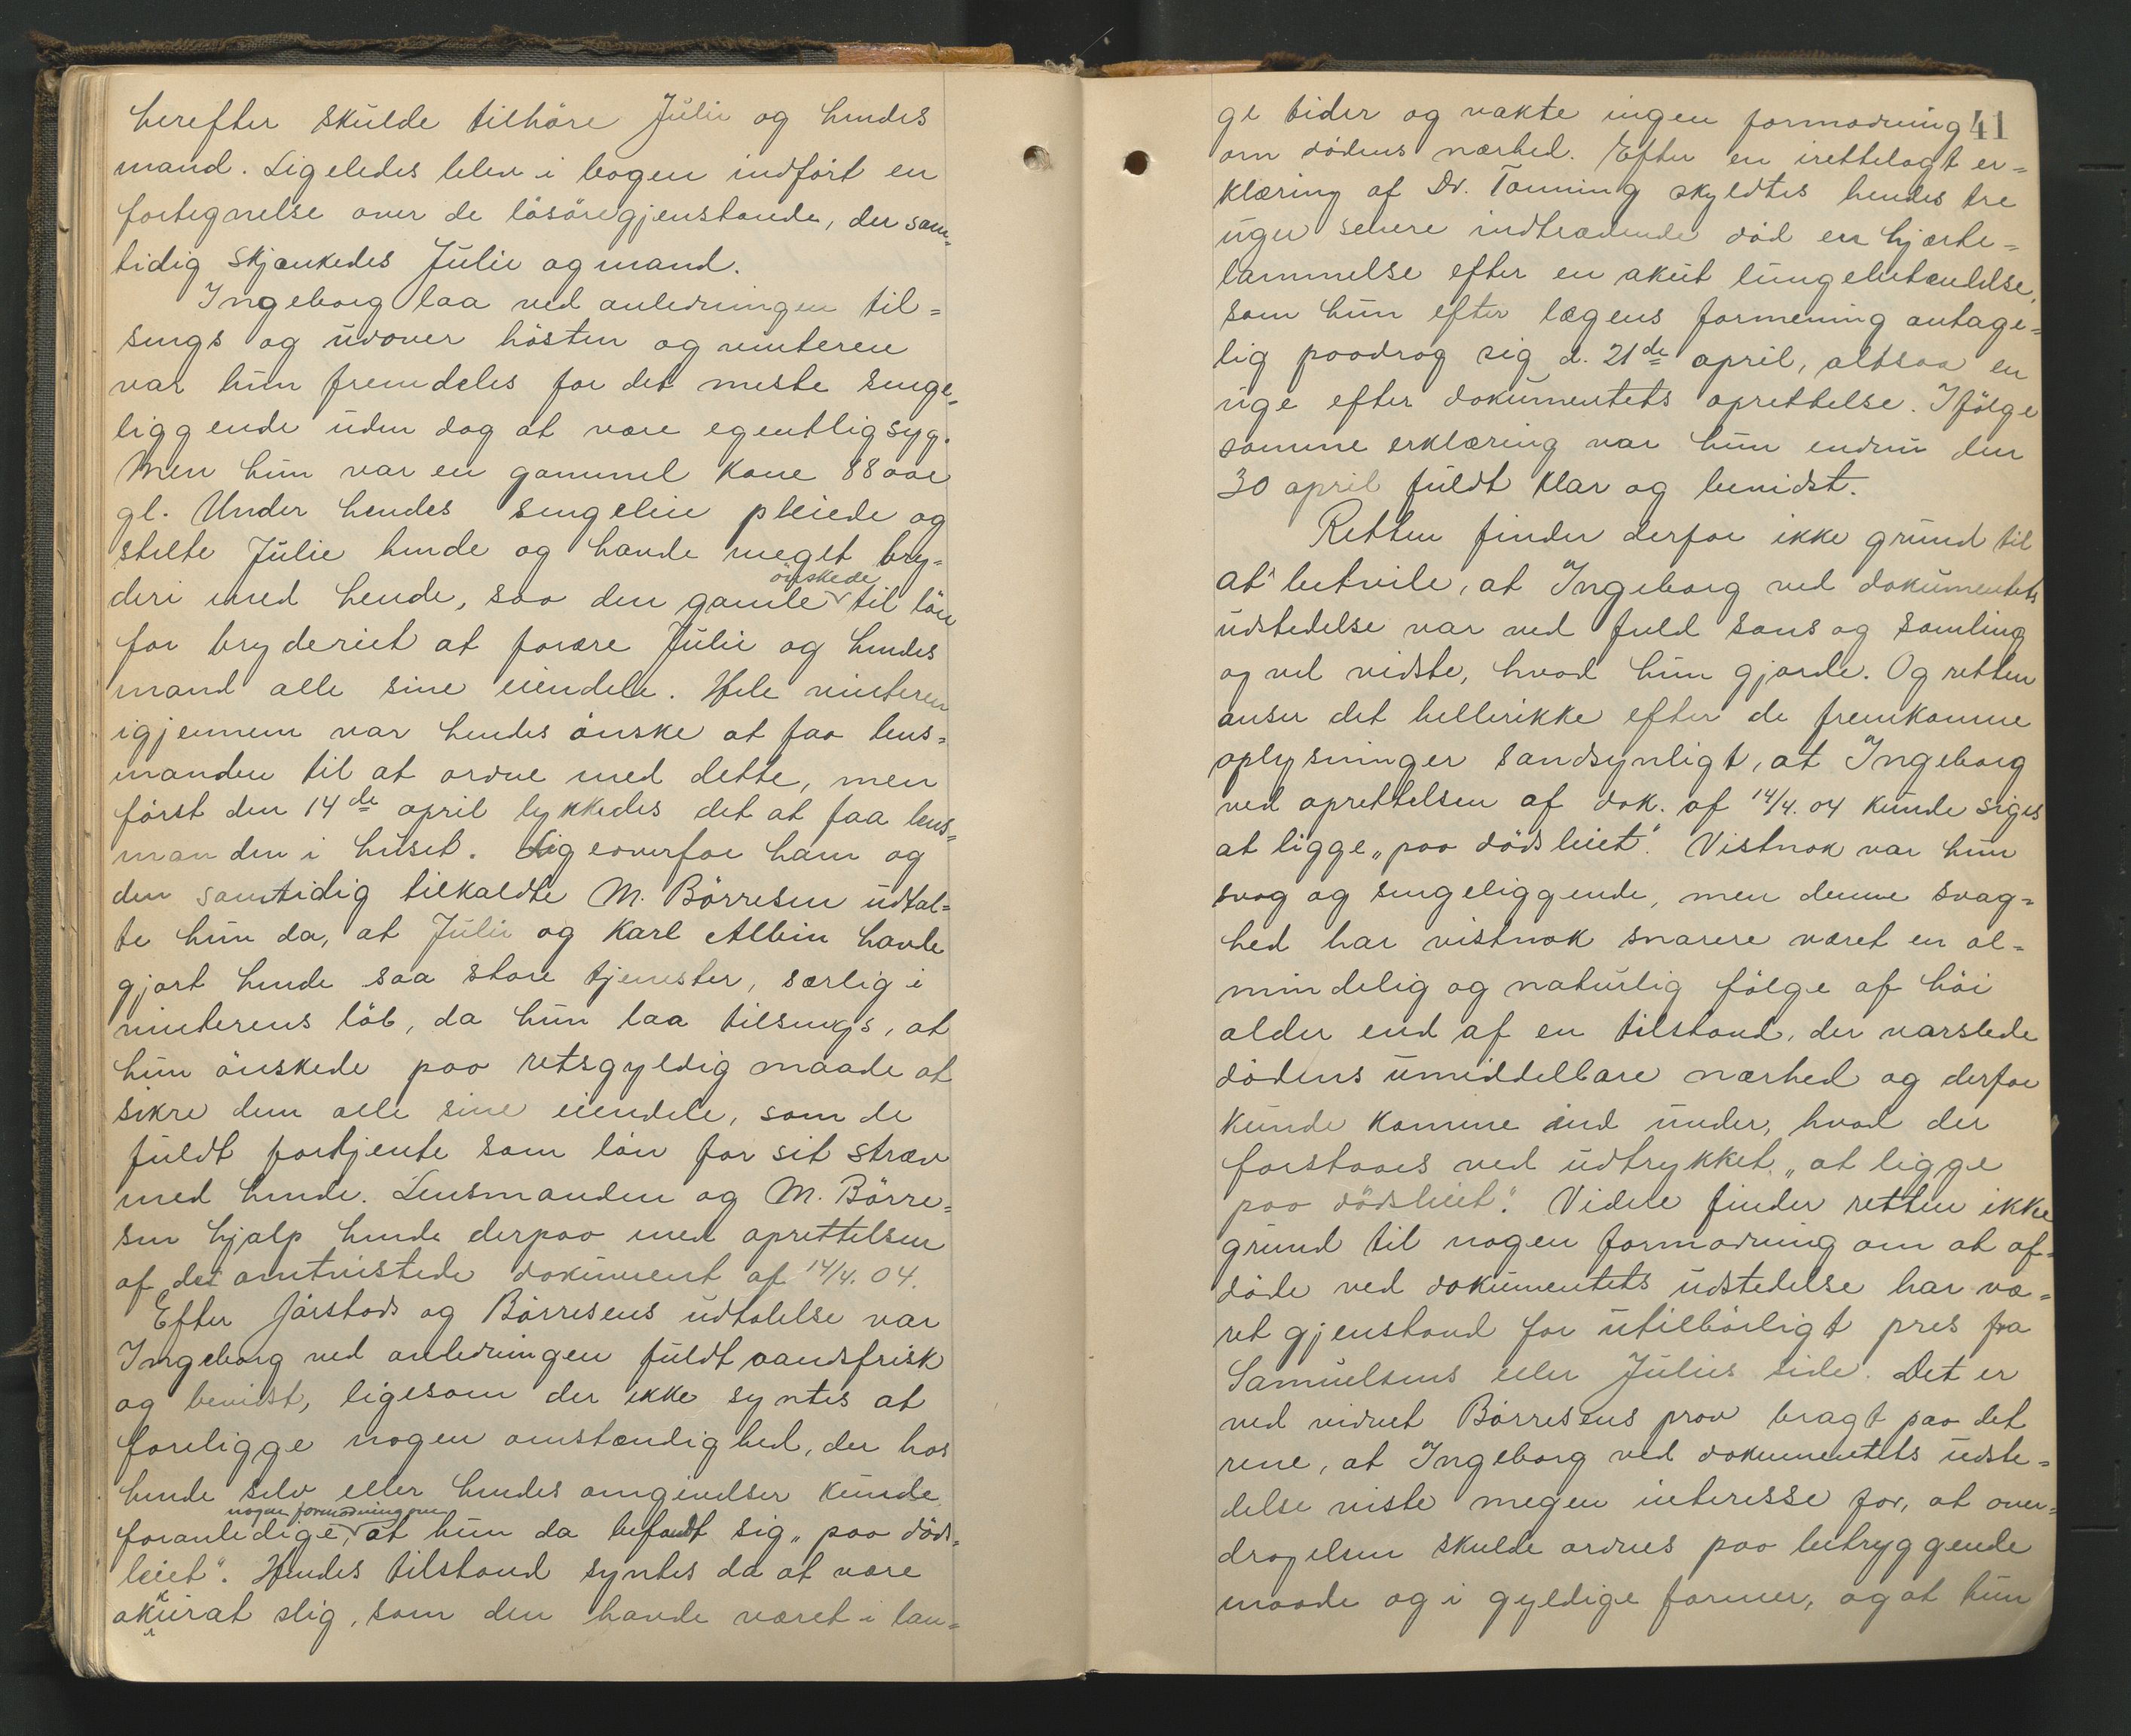 herefter skulde tilhöre Julie og hendes
mand. Ligeledes blev i bogen indfört en
fortegnelse over de lösöregjenstande, der sam-
tidig skjænkedes Julie og mand.
Ingeborg laa ved anledningen til=
sengs og udover hösten og vinteren
var hun fremdeles for det meste senge-
liggende uden dog at være egentlig syg.
Men hun var en gammel kone 88 aar
gl. Under hendes sengeleie pleiede og
stelte Julie hende og havde meget bry-
önskede
deri med hende, saa den gamle til lön
for bryderiet at forære Julie og hendes
mand alle sine eiendele. Hele vinteren
igjennem var hendes önske at faa lens=
manden til at ordne med dette, men
först den 14de april lykkedes det at faa lens=
manden i huset. Ligeoverfor ham og
den samtidig tilkaldte M. Börresen udtal=
te hun da, at Julie og Karl Albin havde
gjort hende saa store tjenester, særlig i
vinterens löb, da hun laa tilsengs, at
hun önskede paa retsgyldig maade at
sikre dem alle sine eiendele, som de
fuldt fortjente som lön for sit stræv
med hende. Lensmanden og M. Börre=
sen hjalp hende derpaa med oprettelsen
af det omtvistede dokument af 14/4. 04.
Efter Jörstads og Börresens udtalelse var
Ingeborg ved anledningen fuldt aandsfrisk
og bevidst, ligesom der ikke syntes at
foreligge nogen omstændighed, der hos
hende selv eller hendes omgivelser kunde
nogen formodning om
foranledige, at hun da befandt sig „paa döds-
leiet". Hendes tilstand syntes da at være
akkurat slig, som den havde været i lan=
41
ge tider og vakte ingen formodning
om dödens nærhed. Efter en irettelagt er=
klæring af Dr. Tonning skyldtes hendes tre
uger senere indtrædende död en hjerte=
lammelse efter en akut lungebetændelse,
som hun efter lægens formening antage=
lig paadrog sig d. 21de april, altsaa en
uge efter dokumentets oprettelse. Ifölge
samme erklæring var hun endnu den
30 april fuldt klar og bevidst.
Retten finder derfor ikke grund til
at betvile, at Ingeborg ved dokumentets
udstedelse var ved fuld sans og samling
og vel vidste, hvad hun gjorde. Og retten
anser det hellerikke efter de fremkomne
oplysninger sandsynligt, at Ingeborg
ved oprettelsen af dok. af 14/4. 04 kunde siges
at ligge „paa dödsleiet". Vistnok var hun
svag og sengeliggende, men denne svag=
hed har vistnok snarere været en al=
mindelig og naturlig fölge af höi
alder end af en tilstand, der varslede
dödens umiddelbare nærhed og derfor
kunde komme ind under, hvad der
forstaaes ved udtrykket „at ligge
paa dödsleiet." Videre finder retten ikke
grund til nogen formodning om at af-
döde ved dokumentets udstedelse har væ=
ret gjenstand for utilbörligt pres fra
Samuelsens eller Julies side. Det er
ved vidnet Börresens prov bragt paa det
rene, at Ingeborg ved dokumentets udste=
delse viste megen interesse for, at over-
dragelsen skulde ordnes paa betryggende
maade og i gyldige former, og at hun